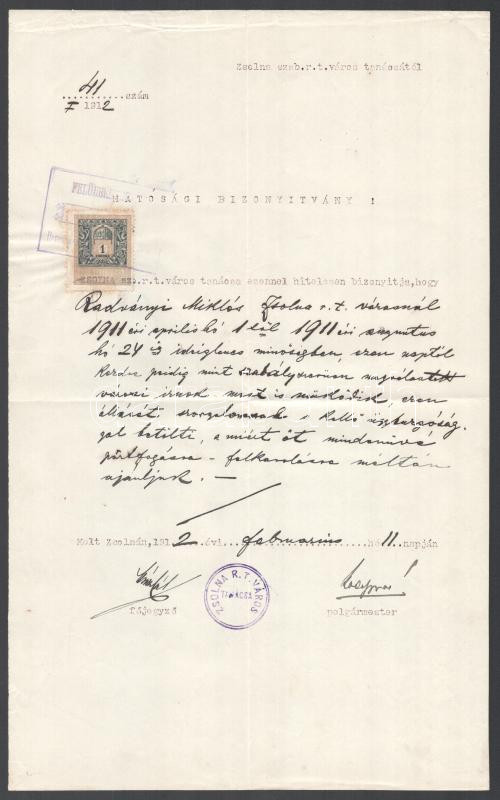 Zsolna szab.r.t.város tanácsától
41
I 1912 szám
FELÜLBÉ
HATÓSÁGI BIZONYITVÁNY !
1
ZSOLNA szab.r.t.város tanácsa ezennel hitelesen bizonyitja,hogy
Radványi Miklós Zsolna r.t. városnál
1911 évi április hó 1től 1911 évi augustus
hó 24 ig ideiglenes minőségben, ezen naptól
kezdve pedig mint szabályszerüen megválasztott
városi irnok most is müködik, ezen
állását szorgalommal s kellő
gal betölti, a miért őt mindenüvé
pártfogásra - felkarolásra méltán
ajánljuk. -
Kelt Zsolnán,1912.évi februarius hó 11.napján
főjegyző
polgármester
ZSOLNA R.T. VÁROS
TANÁCSA